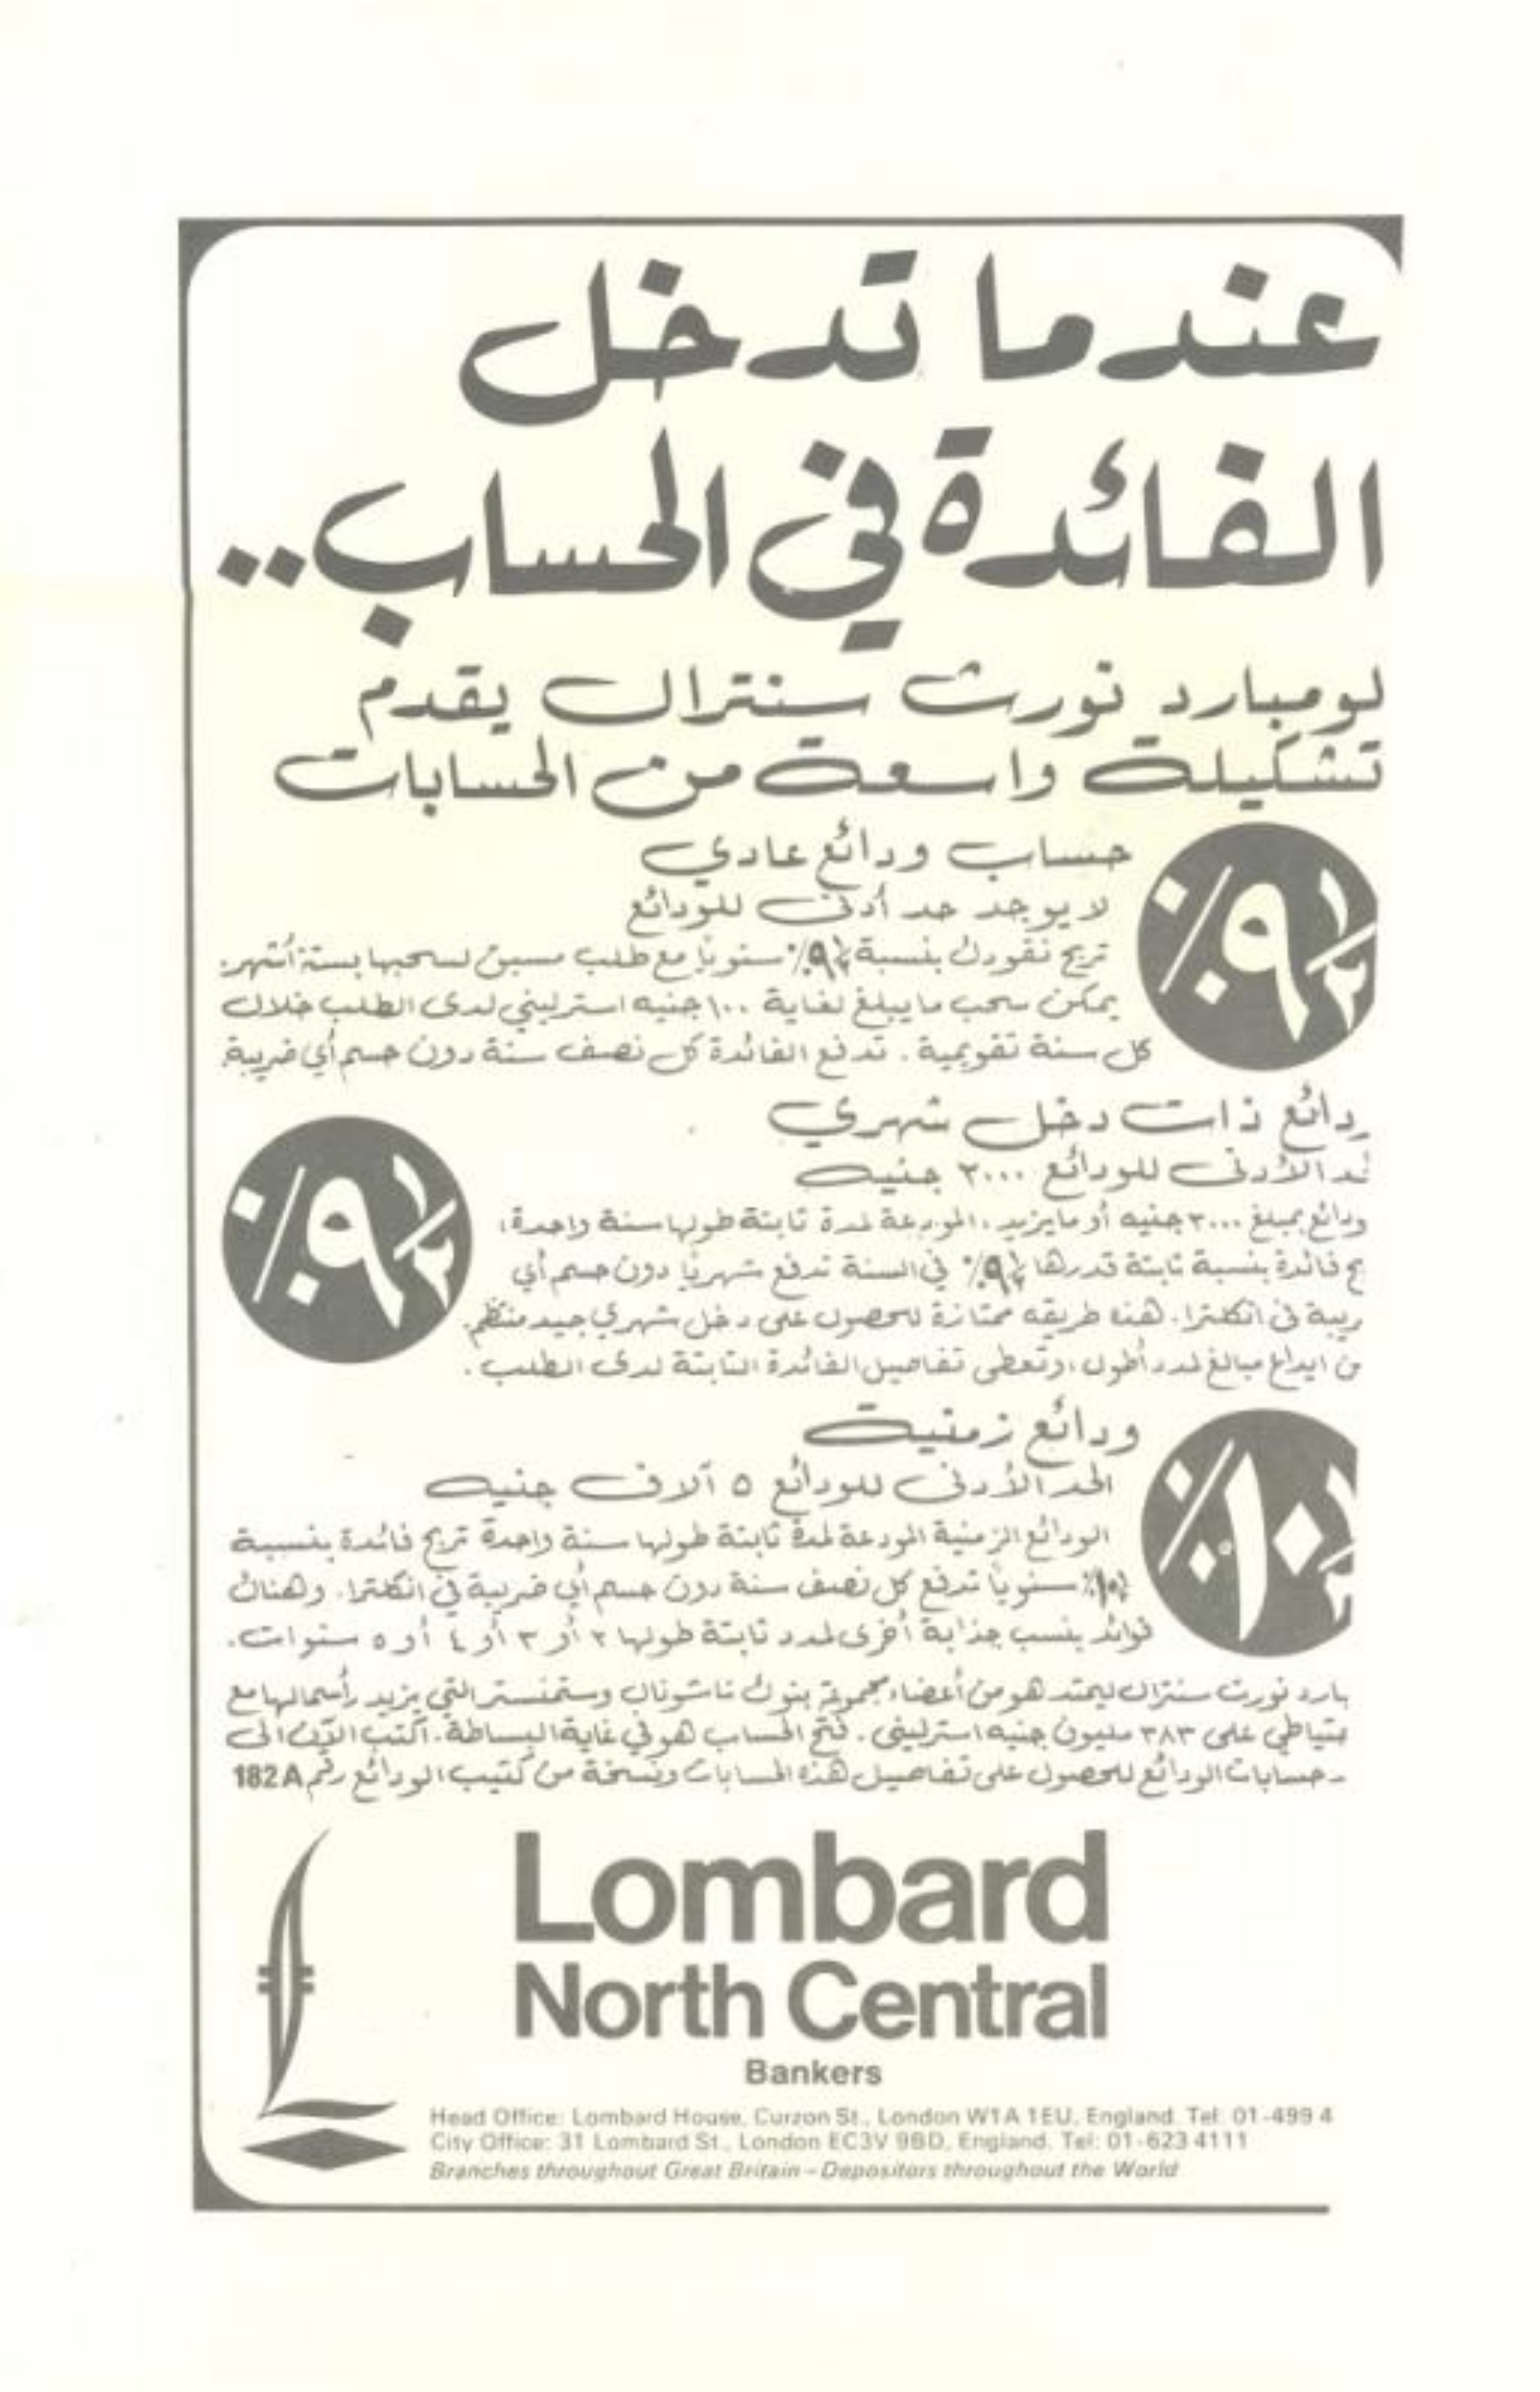 عندما تدخل
الفائدة في الحساب..
لومبارد نورث سنترال يقدم
تشكيلة واسعة من الحسابات
٩½٪
حساب ودائع عادي
لا يوجد حد أدنى للودائع
تربح نقودك بنسبة ٩½٪ سنويًا مع طلب مسبق لسحبها بستة أشهر.
يمكن سحب ما يبلغ لغاية ١٠٠ جنيه استرليني لدى الطلب خلال
كل سنة تقويمية. تدفع الفائدة كل نصف سنة دون حسم أي ضريبة
ردائع ذات دخل شهري
الأدنى للودائع ٣٠٠٠ جنيه
٩½٪
ودائع بمبلغ ٣٠٠٠ جنيه أو مايزيد، المودعة لمدة ثابتة طولها سنة واحدة،
بح فائدة بنسبة ثابتة قدرها ٩½٪ في السنة تدفع شهريًا دون حسم أي
ريبة في انكلترا. هذه طريقه ممتازة للحصول على دخل شهري جيد منظم.
ن ايداع مبالغ لمدد أطول، وتعطى تفاصيل الفائدة الثابتة لدى الطلب.
ودائع زمنية
الحد الأدنى للودائع ٥ آلاف جنيه
١٠½٪
الودائع الزمنية المودعة لمدة ثابتة طولها سنة واحدة تربح فائدة بنسبة
١٠½٪ سنويًا تدفع كل نصف سنة دون حسم أي ضريبة في انكلترا. وهناك
فوائد بنسب جذابة أخرى لمدد ثابتة طولها ٢ أو ٣ أو ٤ أو ٥ سنوات.
بارد نورث سنترال ليمتد هو من أعضاء مجموعة بنوك ناشونال وستمنستر التي يزيد رأسمالها مع
حتياطي على ٣٨٣ مليون جنيه استرليني. فتح الحساب هو في غاية البساطة. اكتب الآن الى
حسابات الودائع للحصول على تفاصيل هذه الحسابات ونسخة من كتيب الودائع رقم 182A
Lombard
North Central
Bankers
Head Office: Lombard House, Curzon St., London W1A 1EU, England. Tel: 01-499 4
City Office: 31 Lombard St., London EC3V 9BD, England. Tel: 01-623 4111
Branches throughout Great Britain – Depositors throughout the World